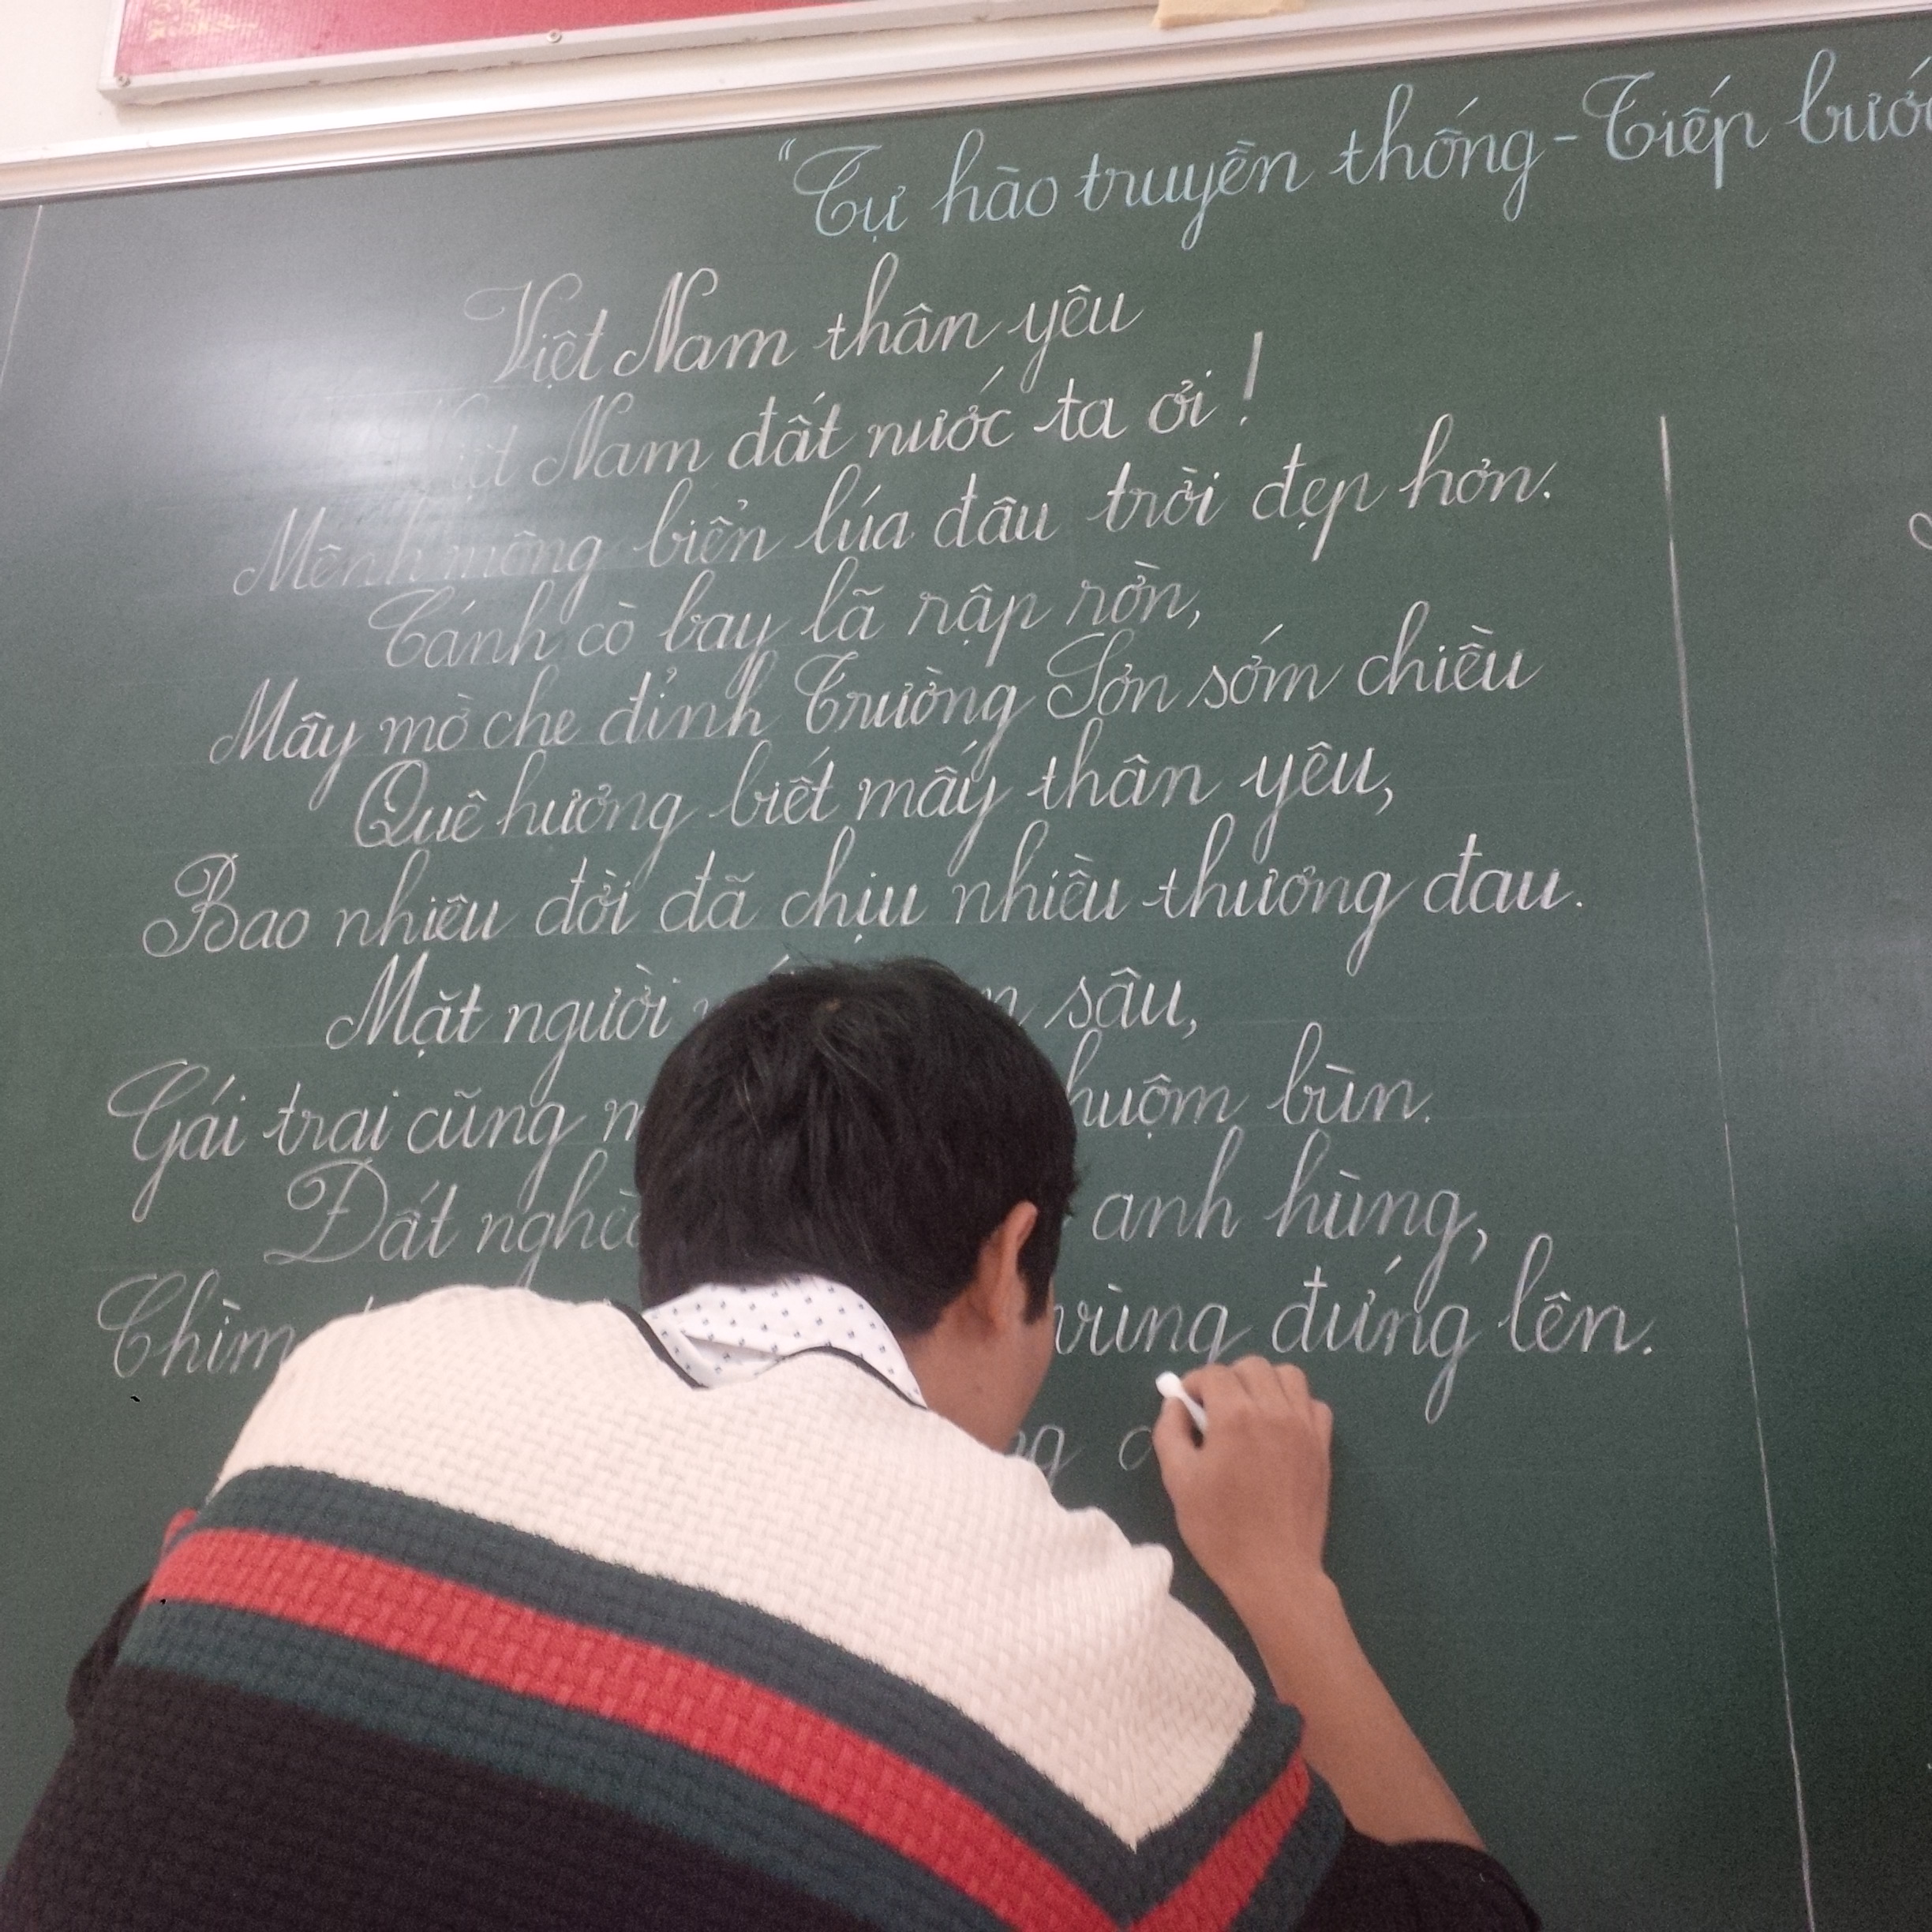 "Tự hào truyền thống - Tiếp bướ
Việt Nam thân yêu
Nam đất nước ta ơi!
Mênh mông biển lúa đâu trời đẹp hơn.
Cánh cò bay lã rập rờn,
Mây mờ che đỉnh Trường Sơn sớm chiều
Quê hương biết mấy thân yêu,
Bao nhiêu đời đã chịu nhiều thương đau.
Mặt người sâu,
Gái trai cũng huộm bùn.
Đất nghè anh hùng,
Chìm vùng đứng lên.